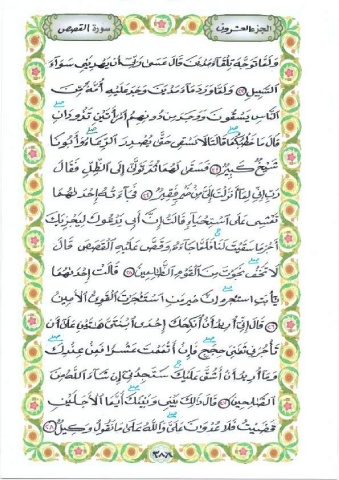 الجزء العشرون
سورة القصص
ولما توجه تلقاء مدين قال عسى ربى أن يهدينى سواء
السبيل ٢٢ ولما ورد ماء مدين وجد عليه أمة من
الناس يسقون ووجد من دونهم امرأتين تذودان
قال ما خطبكما قالتا لا نسقى حتى يصدر الرعاء وأبونا
شيخ كبير ٢٣ فسقى لهما ثم تولى إلى الظل فقال
رب إنى لما أنزلت إلى من خير فقير ٢٤ فجاءته إحداهما
تمشى على استحياء قالت إن أبى يدعوك ليجزيك
أجر ما سقيت لنا فلما جاءه وقص عليه القصص قال
لا تخف نجوت من القوم الظالمين ٢٥ قالت إحداهما
يأبت استجره إن خير من استجرت القوى الأمين
٢٦ قال إنى أريد أن أنكحك إحدى ابنتى هاتين على أن
تأجرنى ثمنى حجج فإن أتممت عشرا فمن عندك
وما أريد أن أشق عليك ستجدنى إن شاء الله من
الصالحين ٢٧ قال ذلك بينى وبينك أيما الأجلين
قضيت فلا عدوان على والله على ما نقول وكيل ٢٨